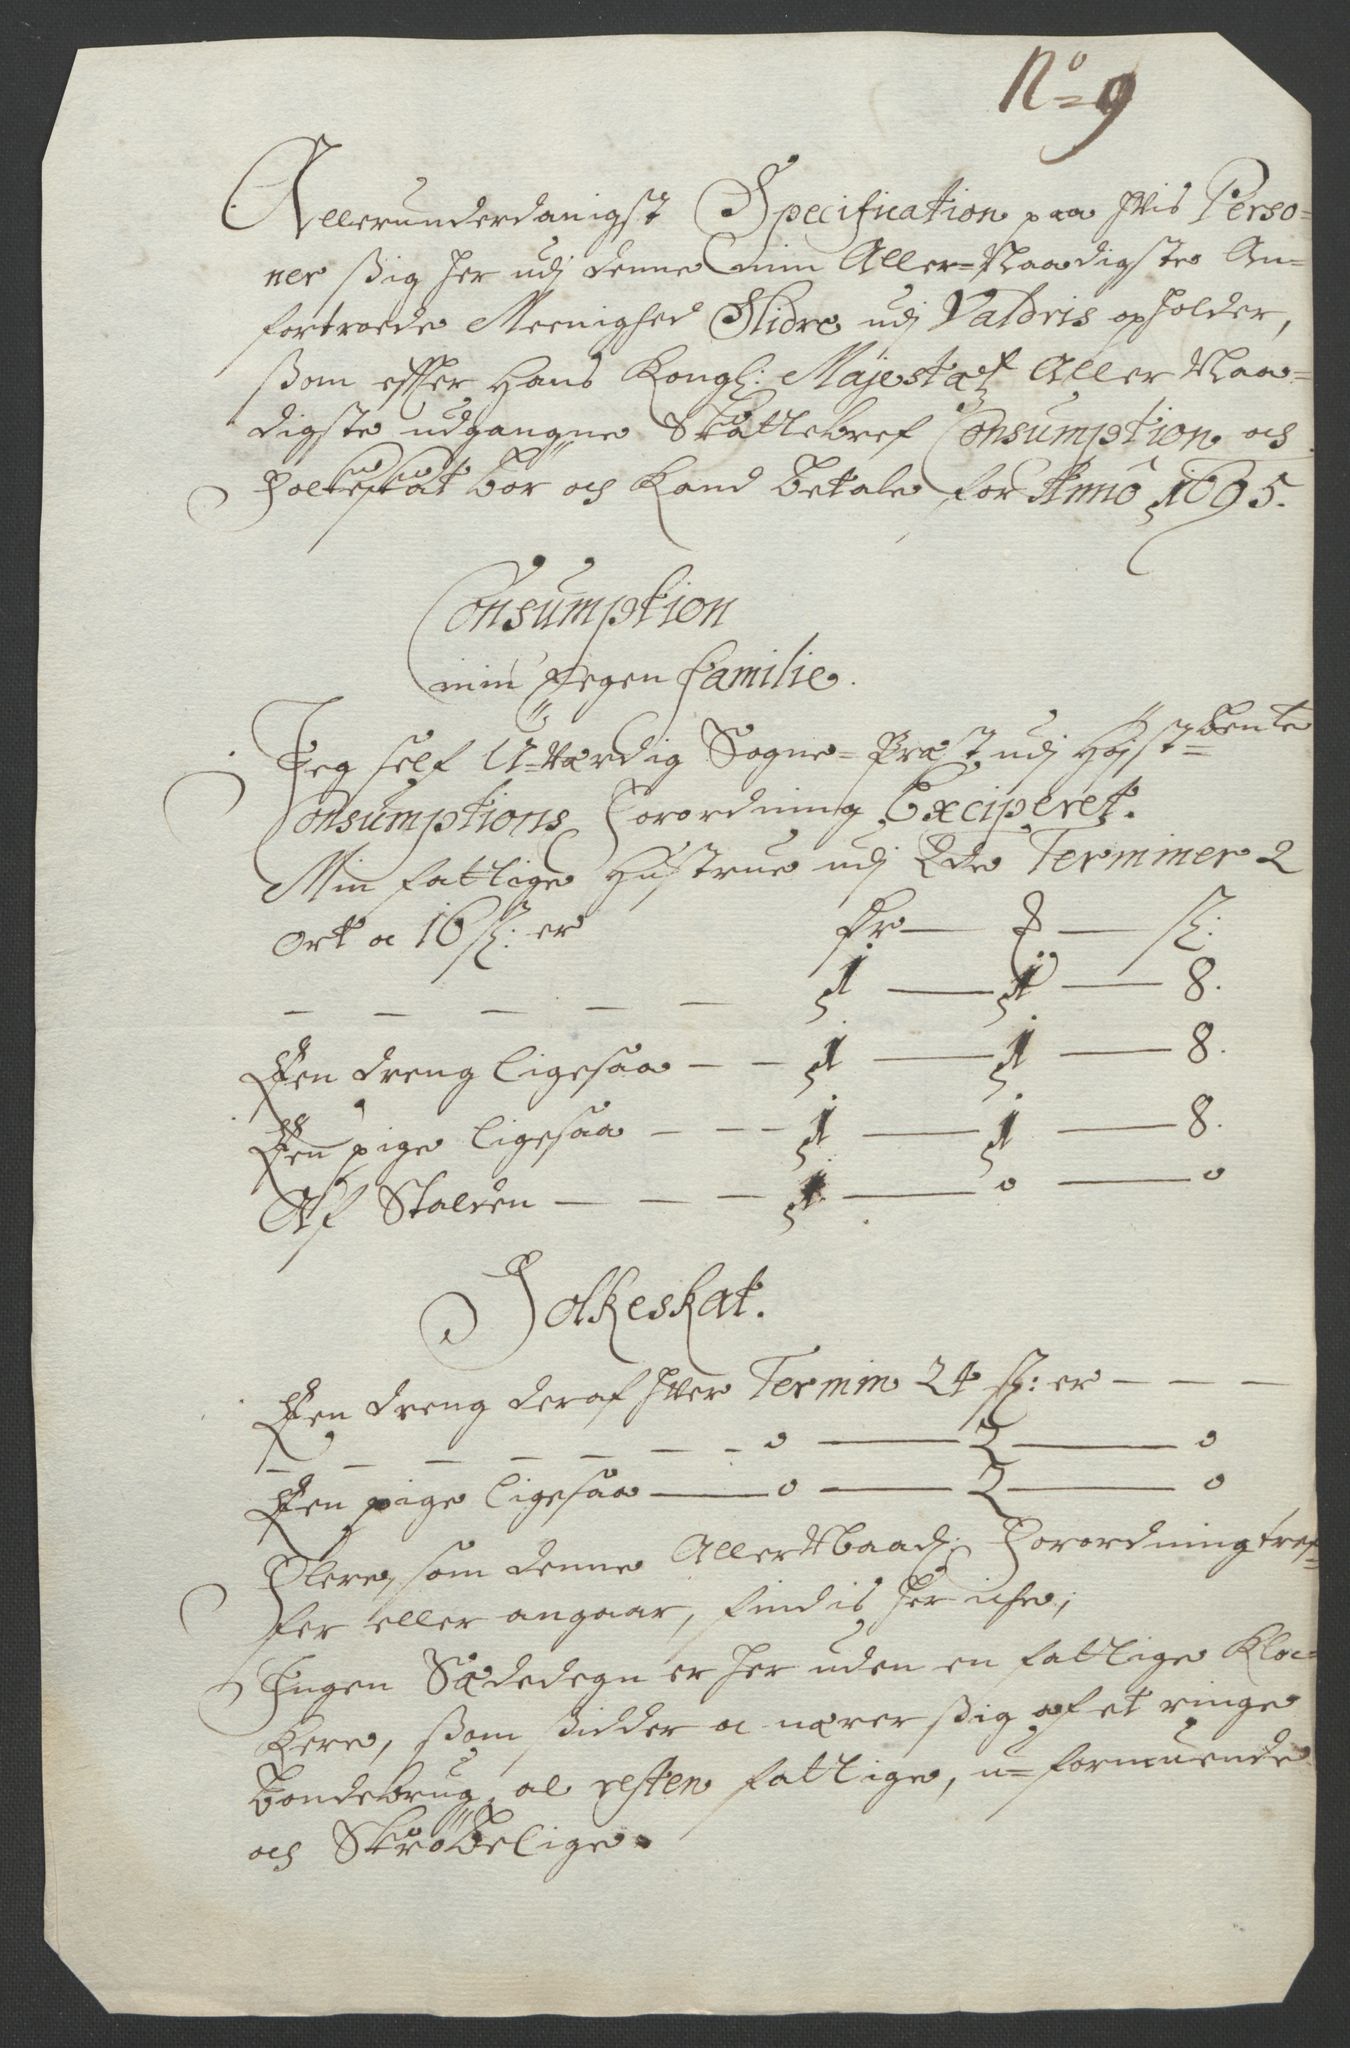 No 9
Allerunderdanigst Specification paa hvis Perso=
ner ßig her udj denne min Aller-Naadigste An=
fortroede Meenighed Slidre udj Valdris opholder,
ßom effter Hans Kongl: Majestæt Aller Naa=
digste udgangne Skattebref Consumption och
Folkeskat bør och kand betale for Anno 1695.
Consumption
min Eegen familie.
Jeg self U-værdig Sogne=Præst udj Højst=bente
Consumptions Forordning Exciperet.
Min fattige Hustrue udj 2de Terminer 2
ort a 16 ß: er
1 — 1 — 8.
Een dreng ligesaa — — 1 — 1 — 8.
Een pige ligesaa — — — 1 — 1 — 8.
Af Stalden — — — 1 — 0 — 0
Folkeskat.
Een dreng deraf hver Termin 24 ß: er — — —
— — — — — — 0 — 2 — 0
Een pige ligesaa — 0 — 2 — 0
Flere, som denne AllerNaad: Forordning tref=
fer eller angaar, findis her iche;
Ingen Sædedegn er her uden en fattige Kloc=
kere, ßom ßidder a nærer ßig af et ringe
bondebrug, al resten fattige, u=formuende
och Skrøbelige.